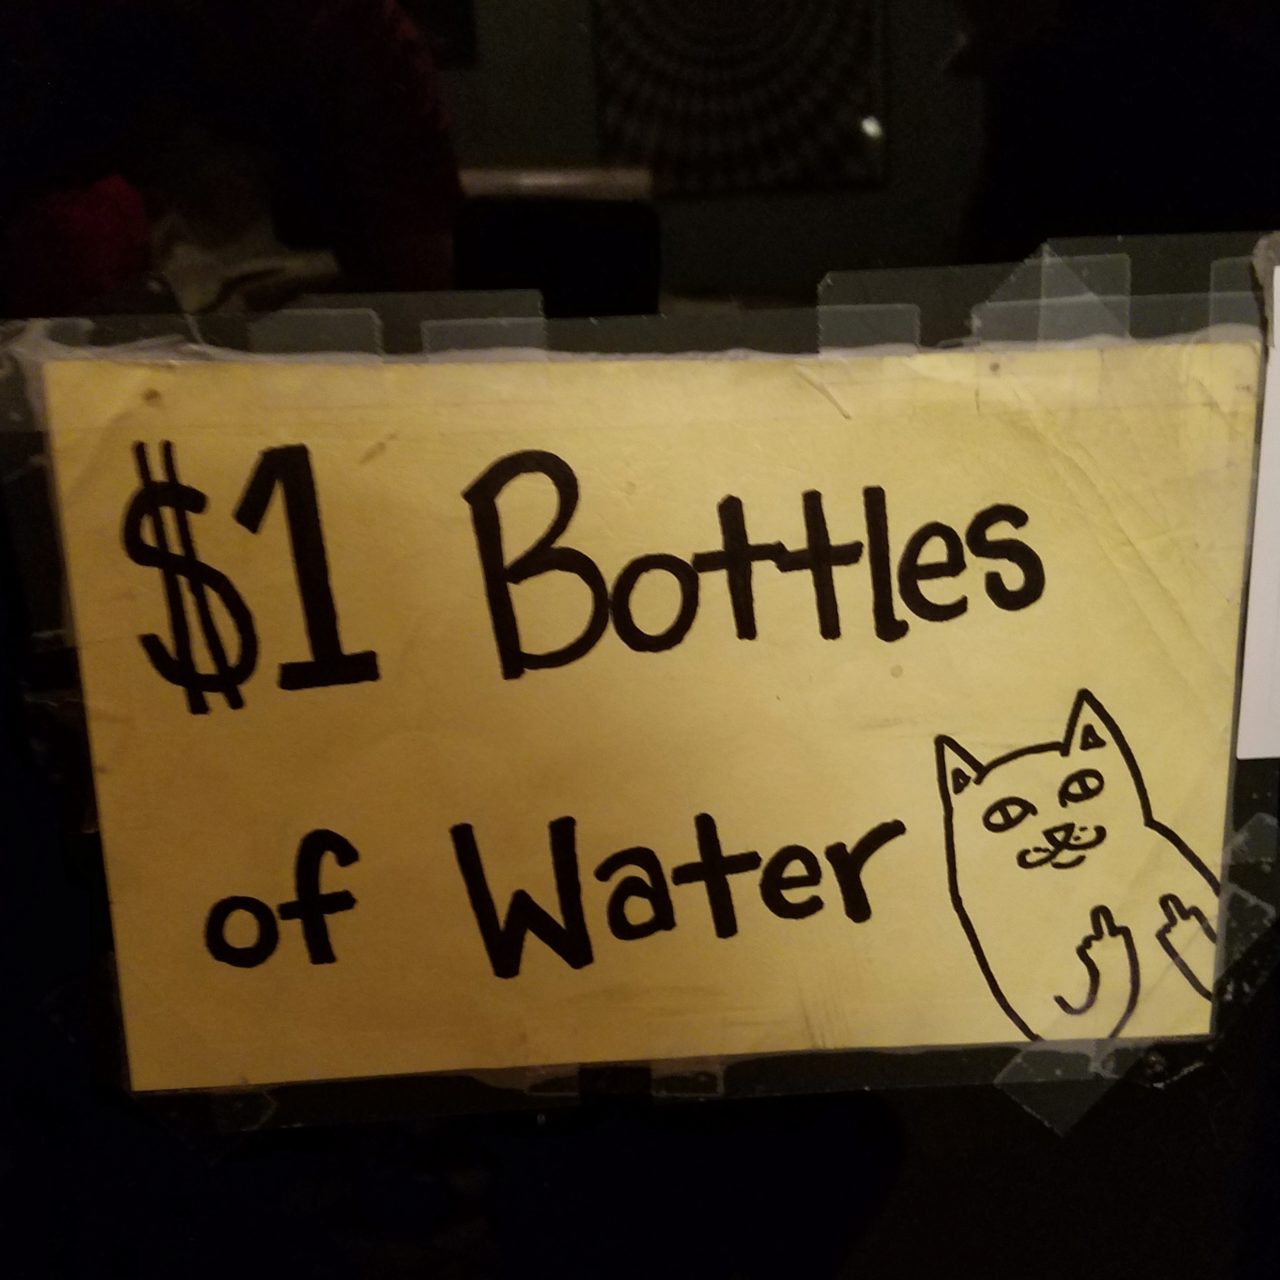 $1 Bottles
of Water